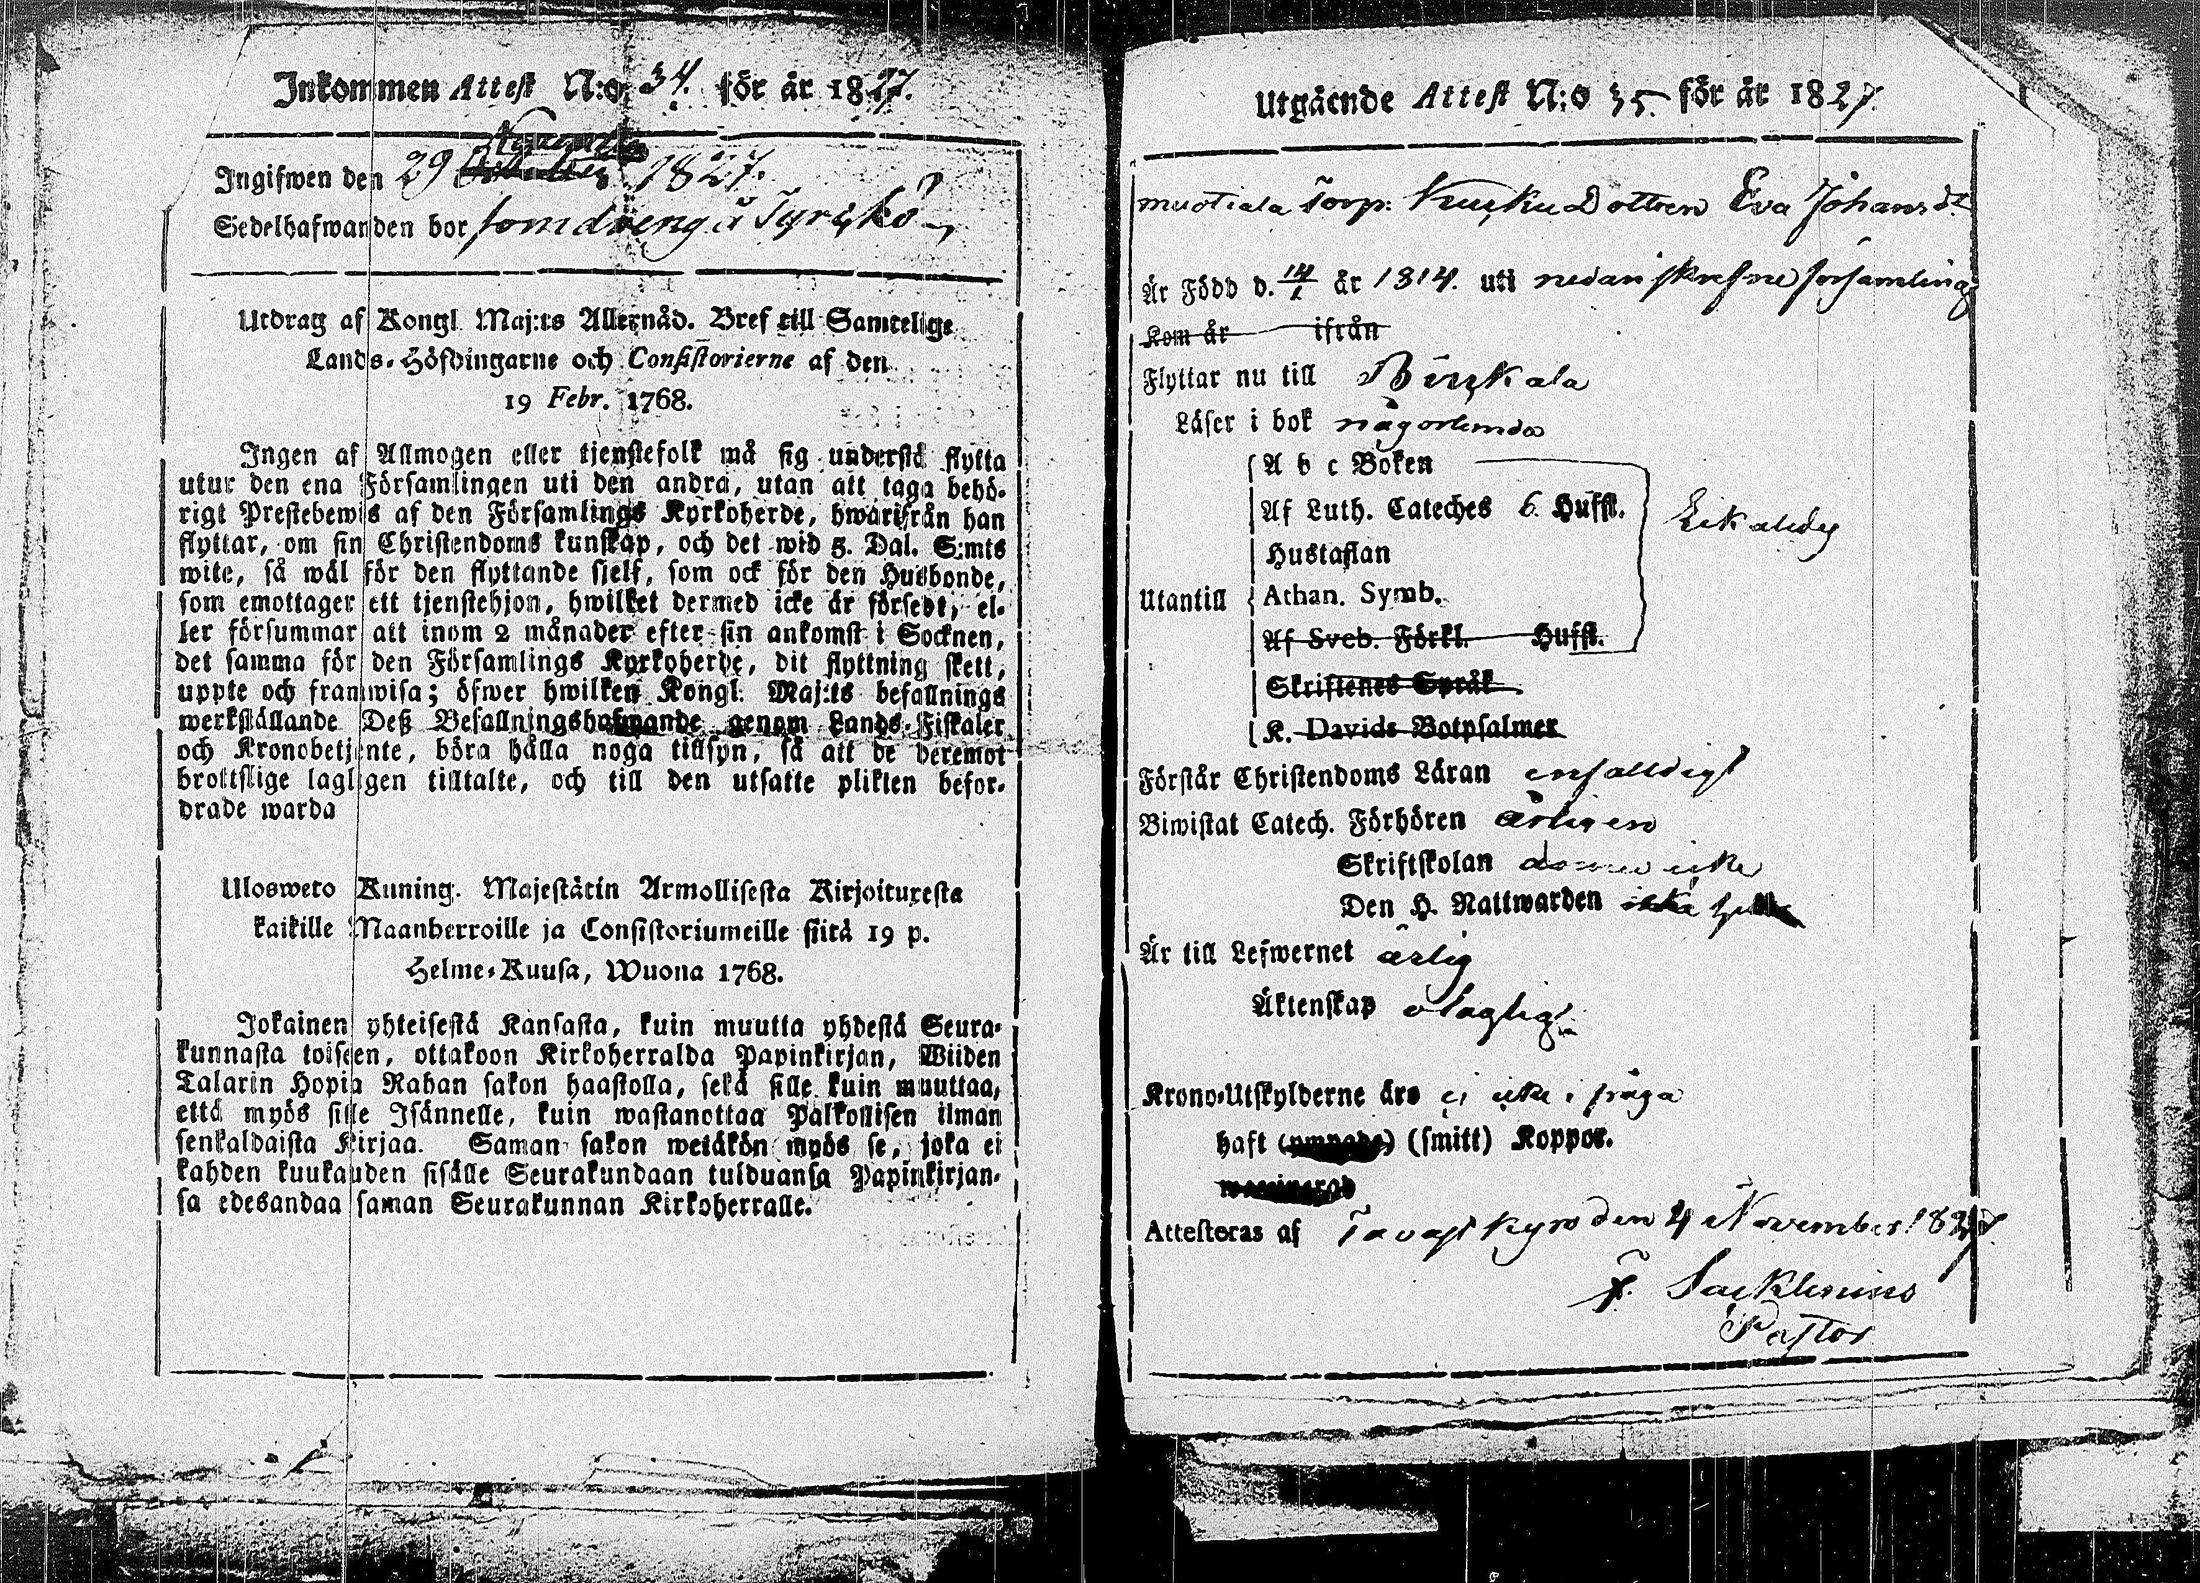 Inkommen Attest N:o 34. för år 1827.
Ingifwen den 29 November 1827.
Sedelhafwanden bor som dreng å Tyrckö
Utdrag af Kongl. Maj:ts Allernåd. Bref till Samtelige
Lands-Höfdingarne och Consistorierne af den
19 Febr. 1768.
Ingen af Allmogen eller tjenstefolk må sig understå flytta
utur den ena Församlingen uti den andra, utan att taga behö-
rigt Prestebewis af den Församlings Kyrkoherde, hwarifrån han
flyttar, om sin Christendoms kunskap, och det wid 5. Dal. S:mts
wite, så wäl för den flyttande sjelf, som ock för den Husbonde,
som emottager ett tjenstehjon, hwilket dermed icke är försedt, el-
ler försummar att inom 2 månader efter sin ankomst i Socknen,
det samma för den Församlings Kyrkoherde, dit flyttning skett,
uppte och framwisa; öfwer hwilken Kongl. Maj:ts befallnings
werkställande Deß Befallningshafwande genom Lands-Fiskaler
och Kronobetjente, böra hålla noga tillsyn, så att de deremot
brottslige lagligen tilltalte, och till den utsatte plikten befor-
drade warda
Uloswето Kuning. Majestätin Armollisesta Kirjoituxesta
kaikille Maanherroille ja Consistoriumeille siitä 19 p.
Helme-Kuusa, Wuona 1768.
Jokainen yhteisestä Kansasta, kuin muutta yhdestä Seura-
kunnasta toiseen, ottakoon Kirkoherralda Papinkirjan, Wiiden
Talarin Hopia Rahan sakon haastolla, sekä sille kuin muuttaa,
että myös sille Isännelle, kuin wastanottaa Palkollisen ilman
senkaldaista Kirjaa. Saman sakon wetäkön myös se, joka ei
kahden kuukauden sisälle Seurakundaan tulduansa Papinkirjan-
sa edesandaa saman Seurakunnan Kirkoherralle.
Utgående Attest N:o 35. för år 1827.
muotiala Torp: Kusku Dottren Eva Johansdr
Är Född d. 14/1 år 1814. uti nedanskrefne församling
Kom år ifrån
Flyttar nu till Birkala
Läser i bok någorlunda
A b c Boken
Af Luth. Cateches 6. Huffst.
Hustaflan
Utantill Athan. Symb.
Af Sveb. Förkl. Huffst.
Skriftenes Språk
K. Davids Botpsalmer
Förstår Christendoms Läran enfalldigt
Biwistat Catech. Förhören årligen
Skriftskolan ännu icke
Den H. Nattwarden icke
Är till Lefwernet ärlig
Äktenskap olaglig
Krono-Utskylderne äro ej icke i fråga
haft (ympade) (smitt) Koppor.
Attesteras af Tavastkyro den 4 November 1827.
F. Sacklenius
Pastor